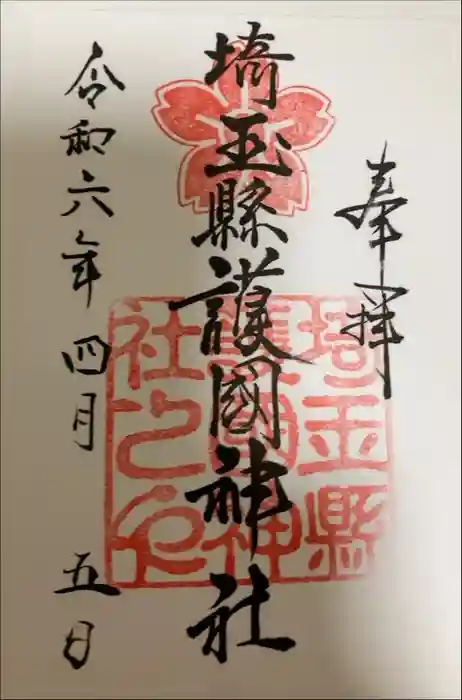 奉拝
埼玉縣護國神社
令和六年四月五日
埼玉縣
護國神
社之印